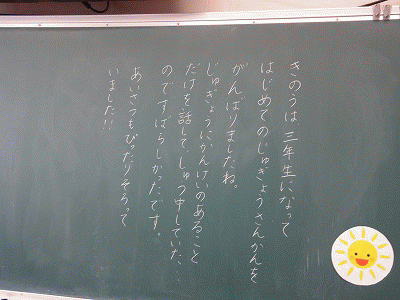 きのうは 三年生になって
はじめてのじゅぎょうさんかんを
がんばりましたね。
じゅぎょうにかんけいのあること
だけを話して、しゅう中していた
のですばらしかったです。
あいさつもぴったりそろって
いました!!